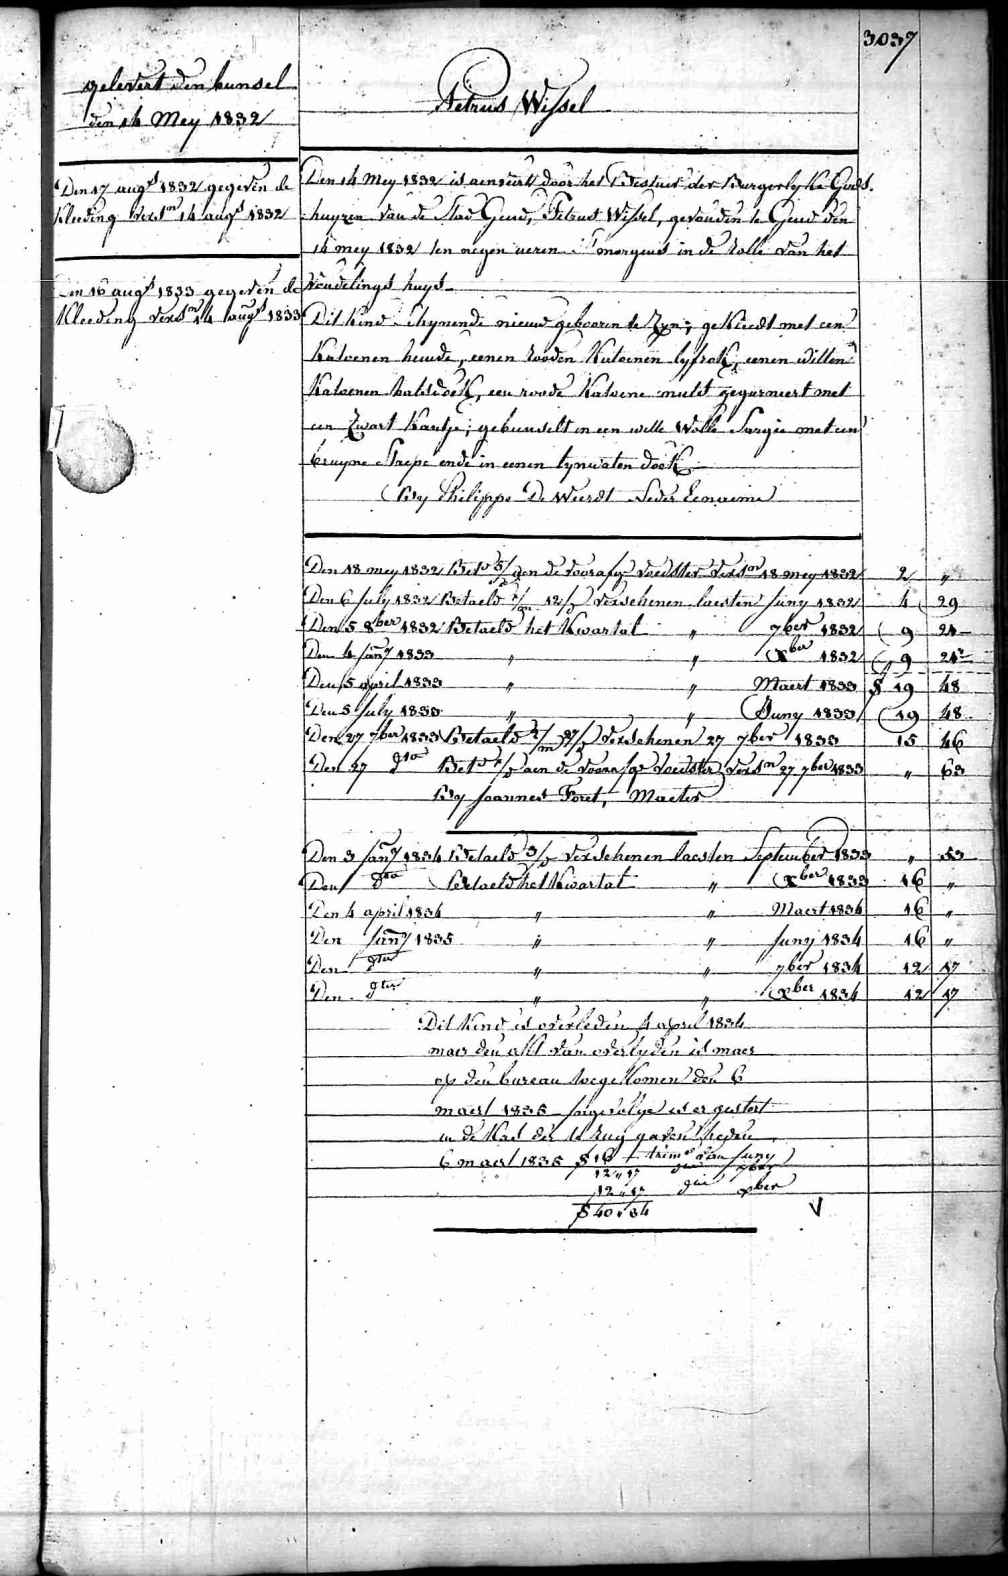 3037
gelevert den bunsel
den 14 Mey 1832
Petrus Wissel
Den 17 augt 1832 gegeven de
kleeding versn 14 augt 1832
Den 16 augt 1833 gegeven de
Kleeding versn 14 augt 1833
Den 14 Mey 1832 is aenveirt door het Bestuer der Burgerlyke Gods-
huyzen van de Stad Gend, Petrus Wissel, gevonden te Gend den
14 mey 1832 ten negen ueren S'morgens in de Rolle van het
vondelings huys
Dit kind schynende nieuw gebooren te zyn; gekleedt met een
Katoenen hemde, eenen rooden Katoenen lyfrok, eenen witten
Katoenen halsdoek, een roode Katoene muts gegarneert met
een zwart kantje; gebunselt in een witte wolle Sargie met een
bruyne Strepe ende in eenen lynwaten doek
By Philippe De Weerdt Eenaeme
Den 18 mey 1832 Betd 5/d aen de voorafge voedster versn 18 mey 1832 2 "
Den 6 July 1832 Betaeld 1/m 12/d verschenen laesten Juny 1832 4 29
Den 5 8ber 1832 Betaeld het Kwartal " 7ber 1832 9 24
Den 4 Jany 1833 " " Xber 1832 9 24
Den 5 april 1833 " " Maert 1833 19 48
Den 5 July 1833 " " Juny 1833 19 48
Den 27 7ber 1833 Betaeld 2/m 27/d verschenen 27 7ber 1833 15 46
Den 27 dto Betd aen de voorafge voedster versn 27 7ber 1833 " 63
By Joannes Foret, Maeter
Den 3 Jany 1834 Betaeld 3/d verschenen laesten September 1833 " 53
Den dto Betaeld het Kwartal " Xber 1833 16 "
Den 4 april 1834 " " Maert 1834 16 "
Den Jany 1835 " " Juny 1834 16 "
Den dto " " 7ber 1834 12 17
Den dto " " Xber 1834 12 17
Dit Kind is overleden 4 april 1834
maer den akt van overlyden is maer
op den bureau toegekomen den 6
maert 1835 is er gestort
in de Kas der te rug gaven heden
6 maert 1835 16 trimr van Juny
12 " 17 7ber
12 " 17 Xber
40 " 34